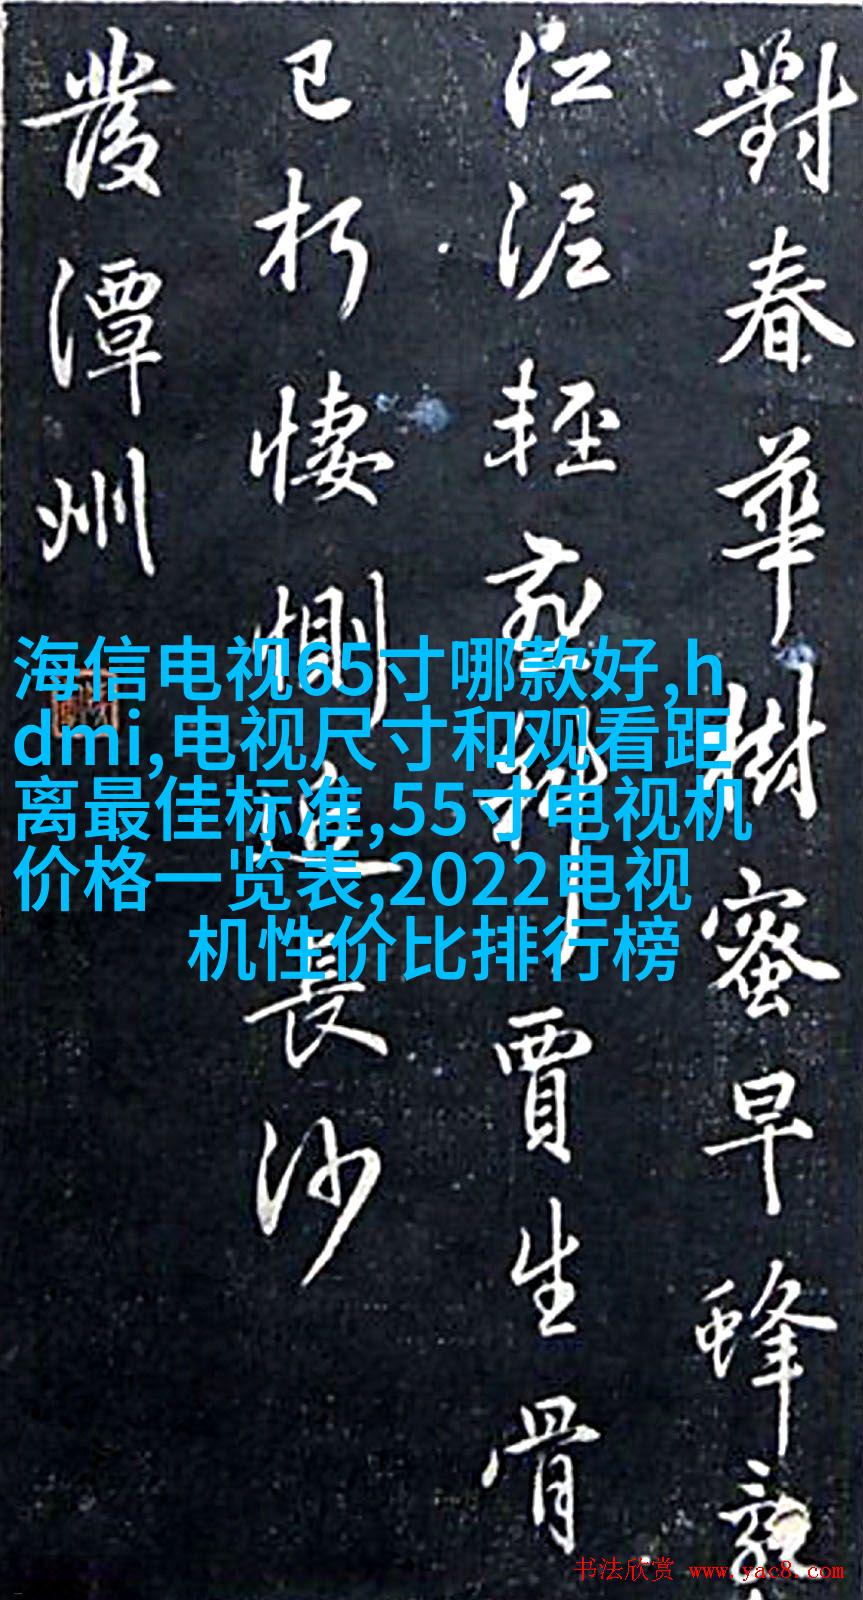 對春華樹蜜早蜂亂
江泥輕燕斜賈生骨
已朽悽惻近長沙
發潭州
海信电视65寸哪款好,h
dmi,电视尺寸和观看距
离最佳标准,55寸电视机
价格一览表,2022电视
机性价比排行榜
书法欣赏 www.yac8.com